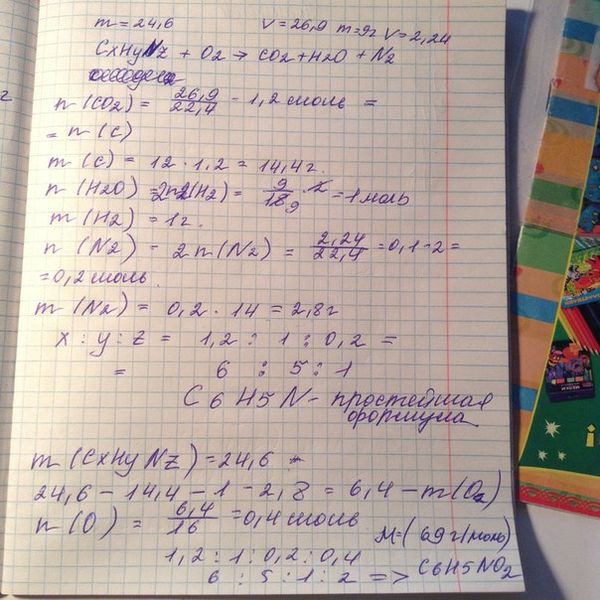 m = 24,6 V = 26,9 m = 9г V = 2,24
CxHyNz + O2 → CO2 + H2O + N2
n (CO2) = 26,9/22,4 - 1,2 моль =
= n (C)
m (C) = 12 · 1,2 = 14,4 г.
n (H2O) = 2n (H2) = 9/18 · 2 = 1 моль
9
m (H2) = 1г.
n (N2) = 2n (N2) = 2,24/22,4 = 0,1 - 2 =
= 0,2 моль
m (N2) = 0,2 · 14 = 2,8г
x : y : z = 1,2 : 1 : 0,2 =
= 6 : 5 : 1
C6H5N - простейшая
формула
m (CxHyNz) = 24,6
24,6 - 14,4 - 1 - 2,8 = 6,4 - m(O2)
n (O) = 6,4/16 = 0,4 моль
M = (69 г/моль)
1,2 : 1 : 0,2 : 0,4
6 : 5 : 1 : 2 => C6H5NO2